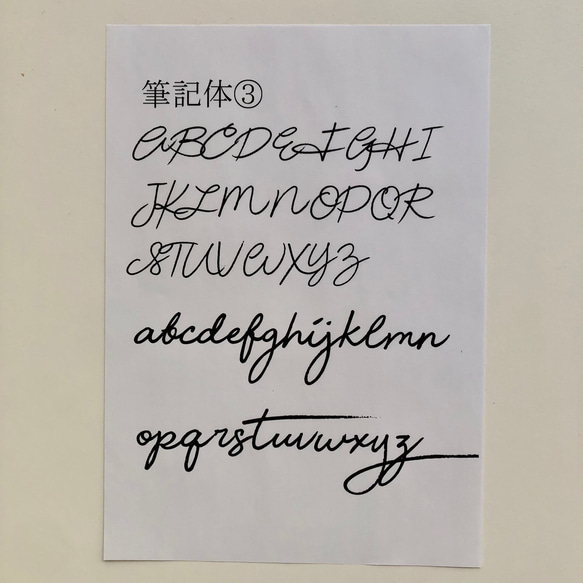 筆記体③
ABCDEFGHI
JKLMNOPQR
STUVWXYZ
abcdefghijklmn
opqrstuvwxyz